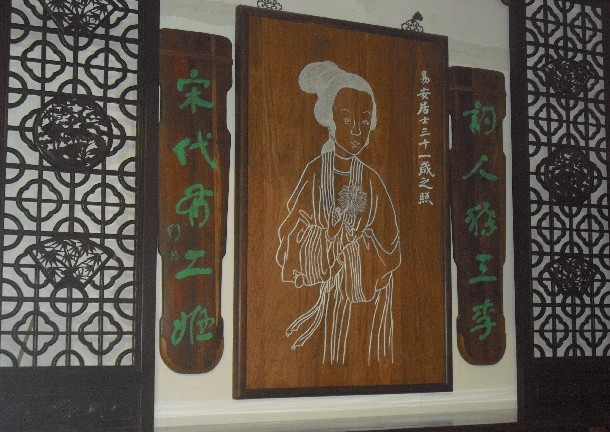 詞人称三李
易安居士三十一歲之照
宋代有二姬